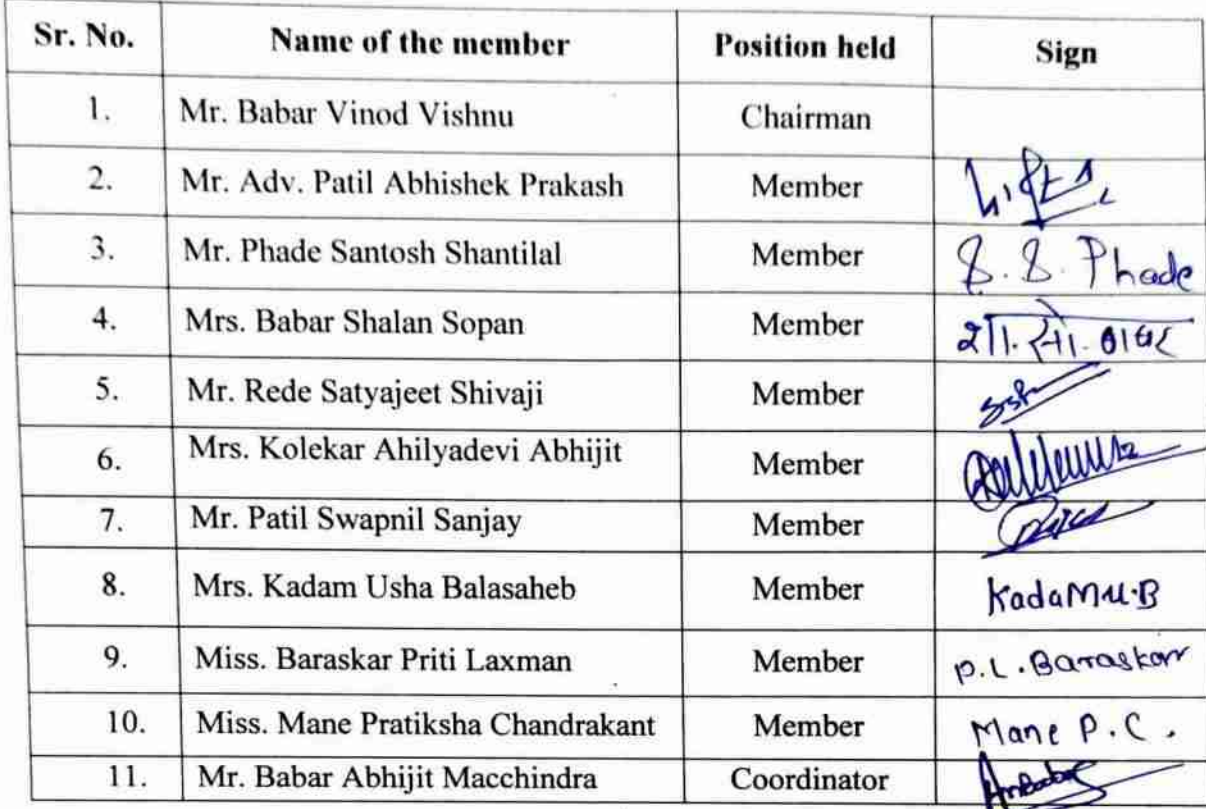 Sr. No. Name of the member Position held Sign
1. Mr. Babar Vinod Vishnu Chairman
2. Mr. Adv. Patil Abhishek Prakash Member
3. Mr. Phade Santosh Shantilal Member S. S. Phade
4. Mrs. Babar Shalan Sopan Member शा. सो. बाबर
5. Mr. Rede Satyajeet Shivaji Member
6. Mrs. Kolekar Ahilyadevi Abhijit Member
7. Mr. Patil Swapnil Sanjay Member
8. Mrs. Kadam Usha Balasaheb Member Kadam U.B
9. Miss. Baraskar Priti Laxman Member P. L. Baraskar
10. Miss. Mane Pratiksha Chandrakant Member Mane P. C.
11. Mr. Babar Abhijit Macchindra Coordinator